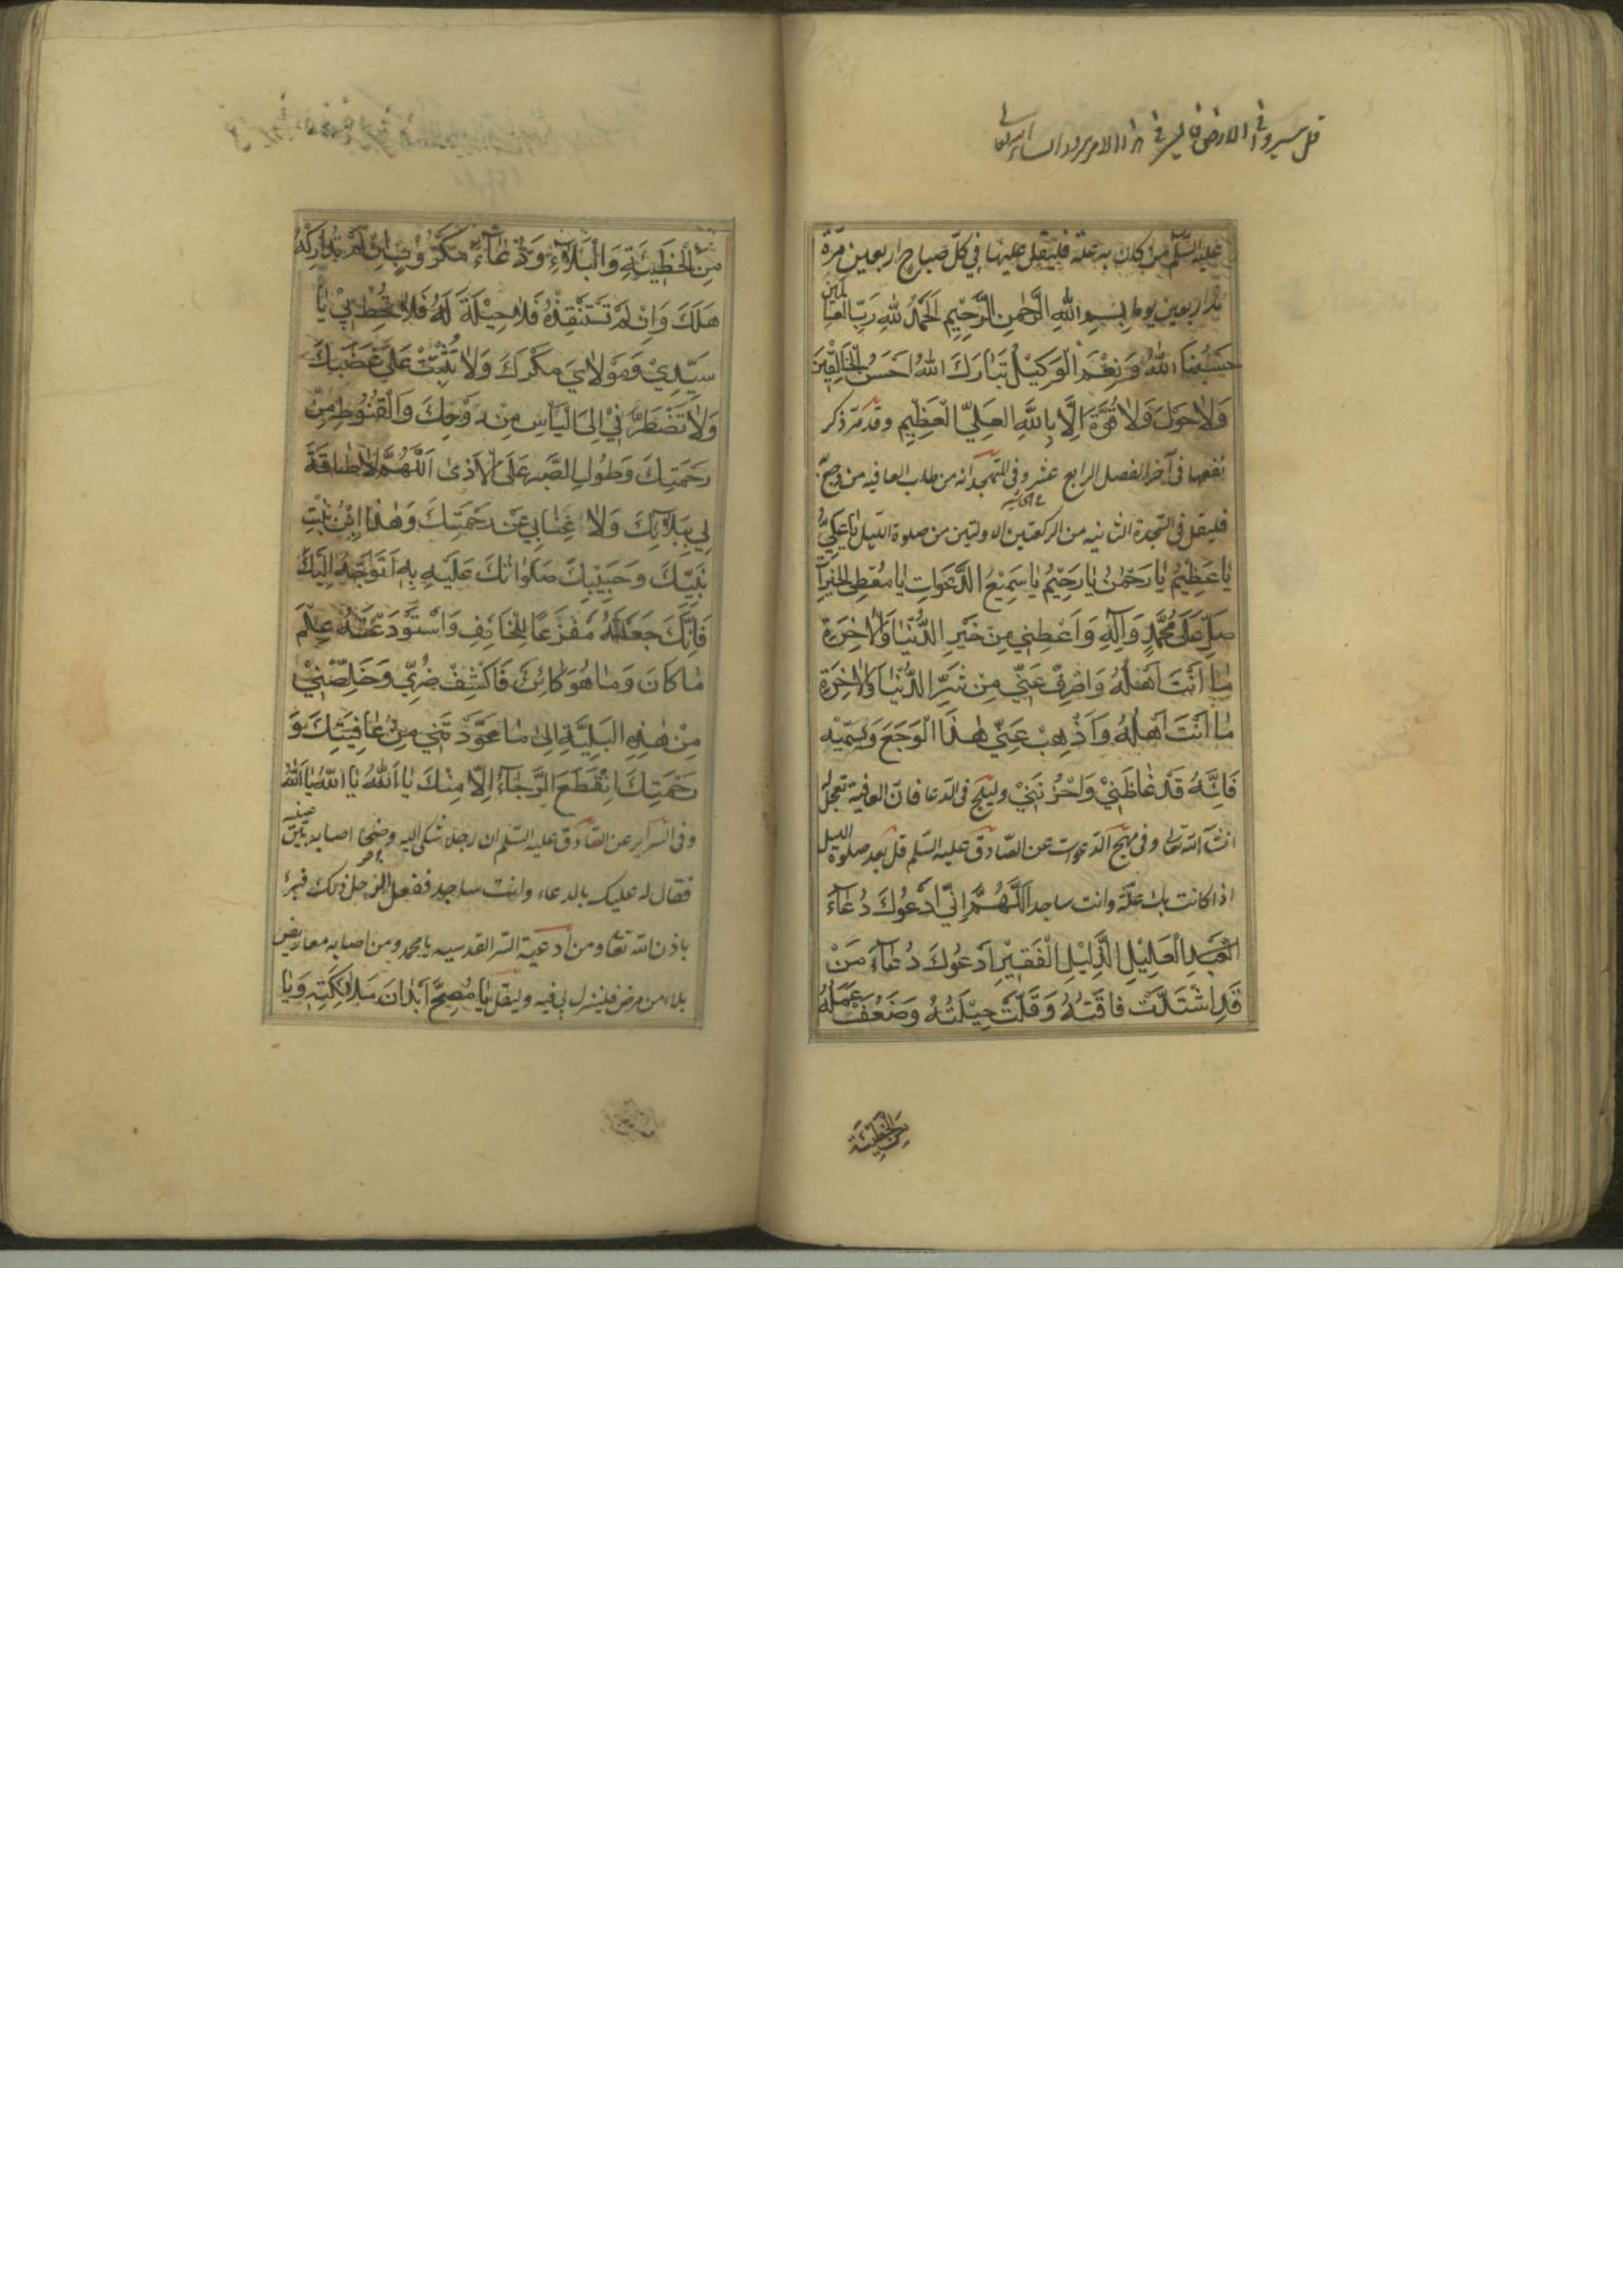 قل سيروا فى الارض
عليه السّلم من كان به علة فليقل عليها في كلّ صباح اربعين مرّة
اربعين يوما بِسْمِ اللهِ الرَّحْمٰنِ الرَّحِيْمِ اَلْحَمْدُ لِلّٰهِ رَبِّ العٰالَمين
حَسْبُنَا اللهُ وَنِعْمَ الْوَكيْلُ تَبٰارَكَ اللهُ اَحْسَنُ الْخٰالِقِيْنَ
وَلاٰحَوْلَ وَلاٰ قُوَّةَ اِلَّا بِاللّٰهِ العَلِيِّ الْعَظِيْمِ وقد مرّ ذكر
نفعها فى آخر الفصل الرابع عشر وفى المتهجد انه من طلب العافيه من وجع
فليقل فى السّجدة الثانيه من الركعتين الاولتين من صلوة اللّيل يٰا عَلِيُّ
يٰا عَظِيْمُ يٰا رَحْمٰنُ يٰا رَحِيْمُ يٰا سَمِيْعُ الدَّعَوٰاتِ يٰا مُعْطِىَ الخَيْرٰاتِ
صَلِّ عَلىٰ مُحَمَّدٍ وَآلِهِ وَاَعْطِنِي مِنْ خَيْرِ الدُّنْيٰا وَالْاٰخِرَةِ
مٰا اَنْتَ اَهْلُهُ وَاصْرِفْ عَنّي مِنْ شَرِّ الدُّنْيٰا وَالْاٰخِرَةِ
مٰا اَنْتَ اَهْلُهُ وَاَذْهِبْ عَنّي هٰذَا الْوَجَعَ وَيُسَمّيْهِ
فَاِنَّهُ قَدْ غٰاظَنِيْ وَاَحْزَنَنِيْ وليلح فى الدعا فان العافية تعجل له
انشآءالله تعالى وفى مهج الدعوات عن الصّادق عليه السّلم قل بعد صلوة الليل
اذا كانت بك علّة وانت ساجد اَللّٰهُمَّ اِنّي اَدْعُوكَ دُعٰآءَ
العَبْدِ الْعَلِيْلِ الذَّلِيْلِ الْفَقِيْرِ اَدْعُوكَ دُعٰآءَ مَنْ
قَدِ اشْتَدَّتْ فٰاقَتُهُ وَقَلَّتْ حِيْلَتُهُ وَضَعُفَ عَمَلُهُ
مِنَ الْخَطِيْئَةِ
مِنَ الْخَطِيْئَةِ وَالْبَلاٰءِ وَدُعٰآءَ مَكْرُوْبٍ اِنْ لَمْ تُدٰارِكْهُ
هَلَكَ وَاِنْ لَمْ تَسْتَنْقِذْهُ فَلاٰ حِيْلَةَ لَهُ فَلاٰ تُحِطْ بِيْ يٰا
سَيِّدِيْ وَمَوْلاٰيَ مَكْرَكَ وَلاٰ تُثْبِتْ عَلَيَّ غَضَبَكَ
وَلاٰ تَضْطَرَّنِيْ اِلَى الْيَأْسِ مِنْ رَوْحِكَ وَالْقُنُوْطِ مِنْ
رَحْمَتِكَ وَطُولِ الصَّبْرِ عَلَى الْاَذىٰ اَللّٰهُمَّ لاٰ طٰاقَةَ
لِي بِبَلاٰئِكَ وَلاٰ غِنٰا بِي عَنْ رَحْمَتِكَ وَهٰذَا ابْنُ بِنْتِ
نَبِيِّكَ وَحَبِيْبِكَ صَلَوٰاتُكَ عَلَيْهِ بِهِ اَتَوَجَّهُ اِلَيْكَ
فَاِنَّكَ جَعَلْتَهُ مَفْزَعًا لِلْخٰائِفِ وَاسْتَوْدَعْتَهُ عِلْمَ
مٰا كٰانَ وَمٰا هُوَ كٰائِنٌ فَاكْشِفْ ضُرّي وَخَلِّصْنِيْ
مِنْ هٰذِهِ البَلِيَّةِ اِلىٰ مٰا عَوَّدْتَنِي مِنْ عٰافِيَتِكَ وَ
رَحْمَتِكَ اِنْقَطَعَ الرَّجٰآءُ اِلّا مِنْكَ يٰا اَللهُ يٰا اَللهُ يٰا اَللهُ
وفى السرآير عن الصّادق عليه السّلم ان رجلا شكى اليه وضحا اصابه بين عينيه
فقال له عليك بالدعاء وانت ساجد ففعل الرجل ذلك فبرئ
باذن الله تعالى ومن ادعية السّر القدسيه يا محمد ومن اصابه معاريض
بلاء من مرض فلينزل بي فيه وليقل يٰا مُصِحَّ اَبْدٰانَ مَلاٰئِكَتِهِ وَيٰا